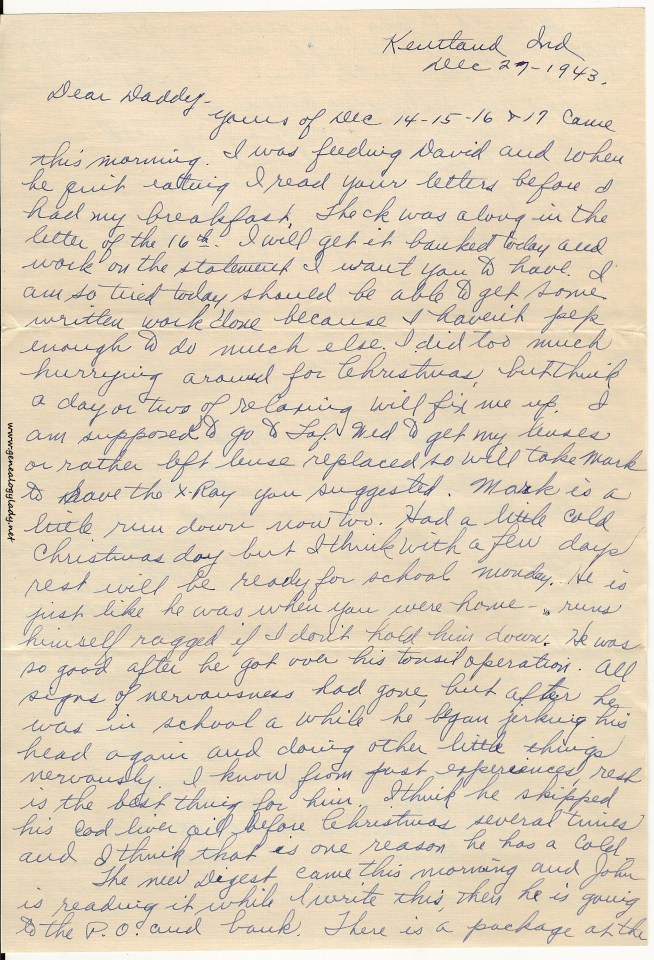 Kentland Ind
Dec 27-1943.
Dear Daddy-
Yours of Dec 14-15-16 & 17 came
this morning. I was feeding David and when
he quit eating I read your letters before I
had my breakfast. The ck was along in the
letter of the 16th. I will get it banked today and
work on the statement I want you to have. I
am so tired today should be able to get some
written work done because I haven't pep
enough to do much else. I did too much
hurrying around for Christmas, but think
a day or two of relaxing will fix me up. I
am supposed to go to Laf. Wed to get my lenses
or rather left lense replaced so will take Mark
to have the X-Ray you suggested. Mark is a
little run down now too. Had a little cold
Christmas day but I think with a few days
rest will be ready for school Monday. He is
just like he was when you were home - runs
himself ragged if I don't hold him down. He was
so good after he got over his tonsil operation. All
signs of nervousness had gone, but after he
was in school a while he began jerking his
head again and doing other little things
nervously. I know from past experiences, rest
is the best thing for him. I think he skipped
his cod liver oil before Christmas several times
and I think that is one reason he has a cold.
The new Digest came this morning and John
is reading it while I write this, then he is going
to the P.O. and bank. There is a package at the
www.genealogylady.net